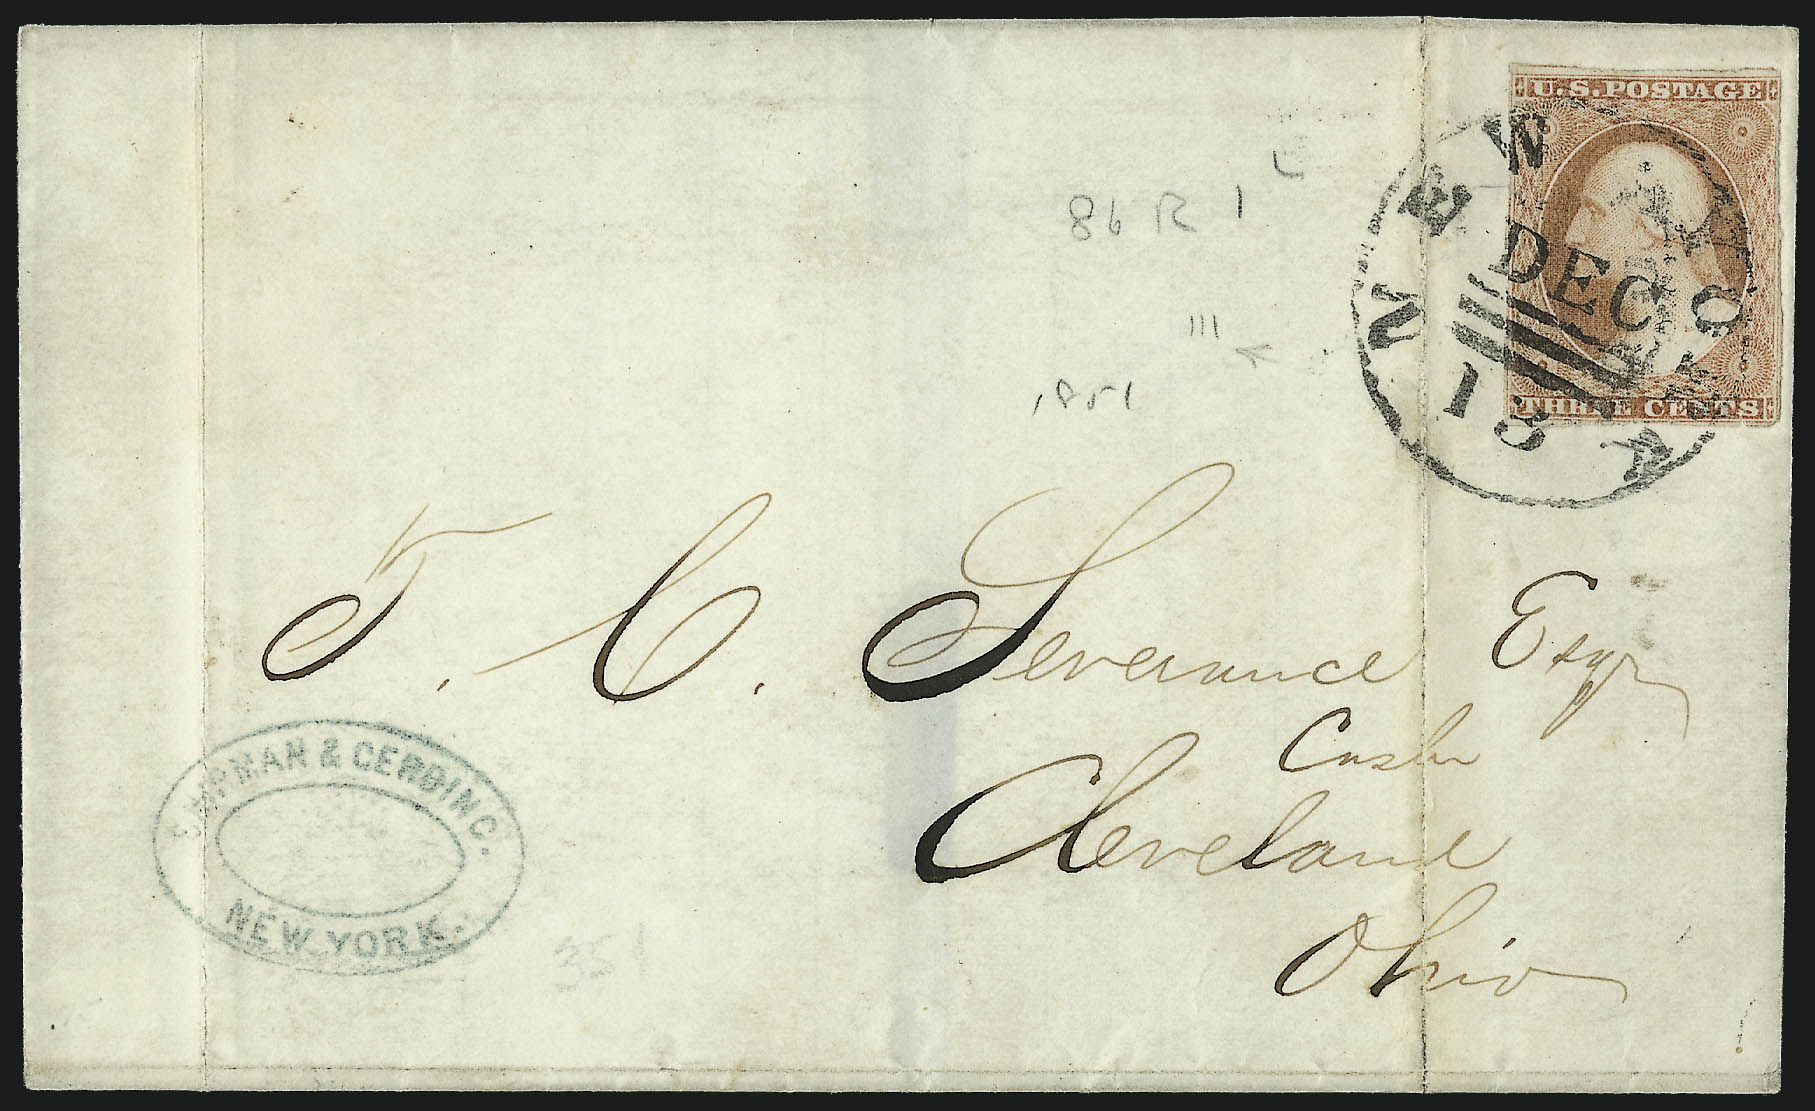 U.S. POSTAGE
THREE CENTS
NEW YORK
DEC
18
86 R 1 L
1851
T. C. Severance Esqr
Cashr
Cleveland
Ohio
& GERDING.
NEW YORK.
351